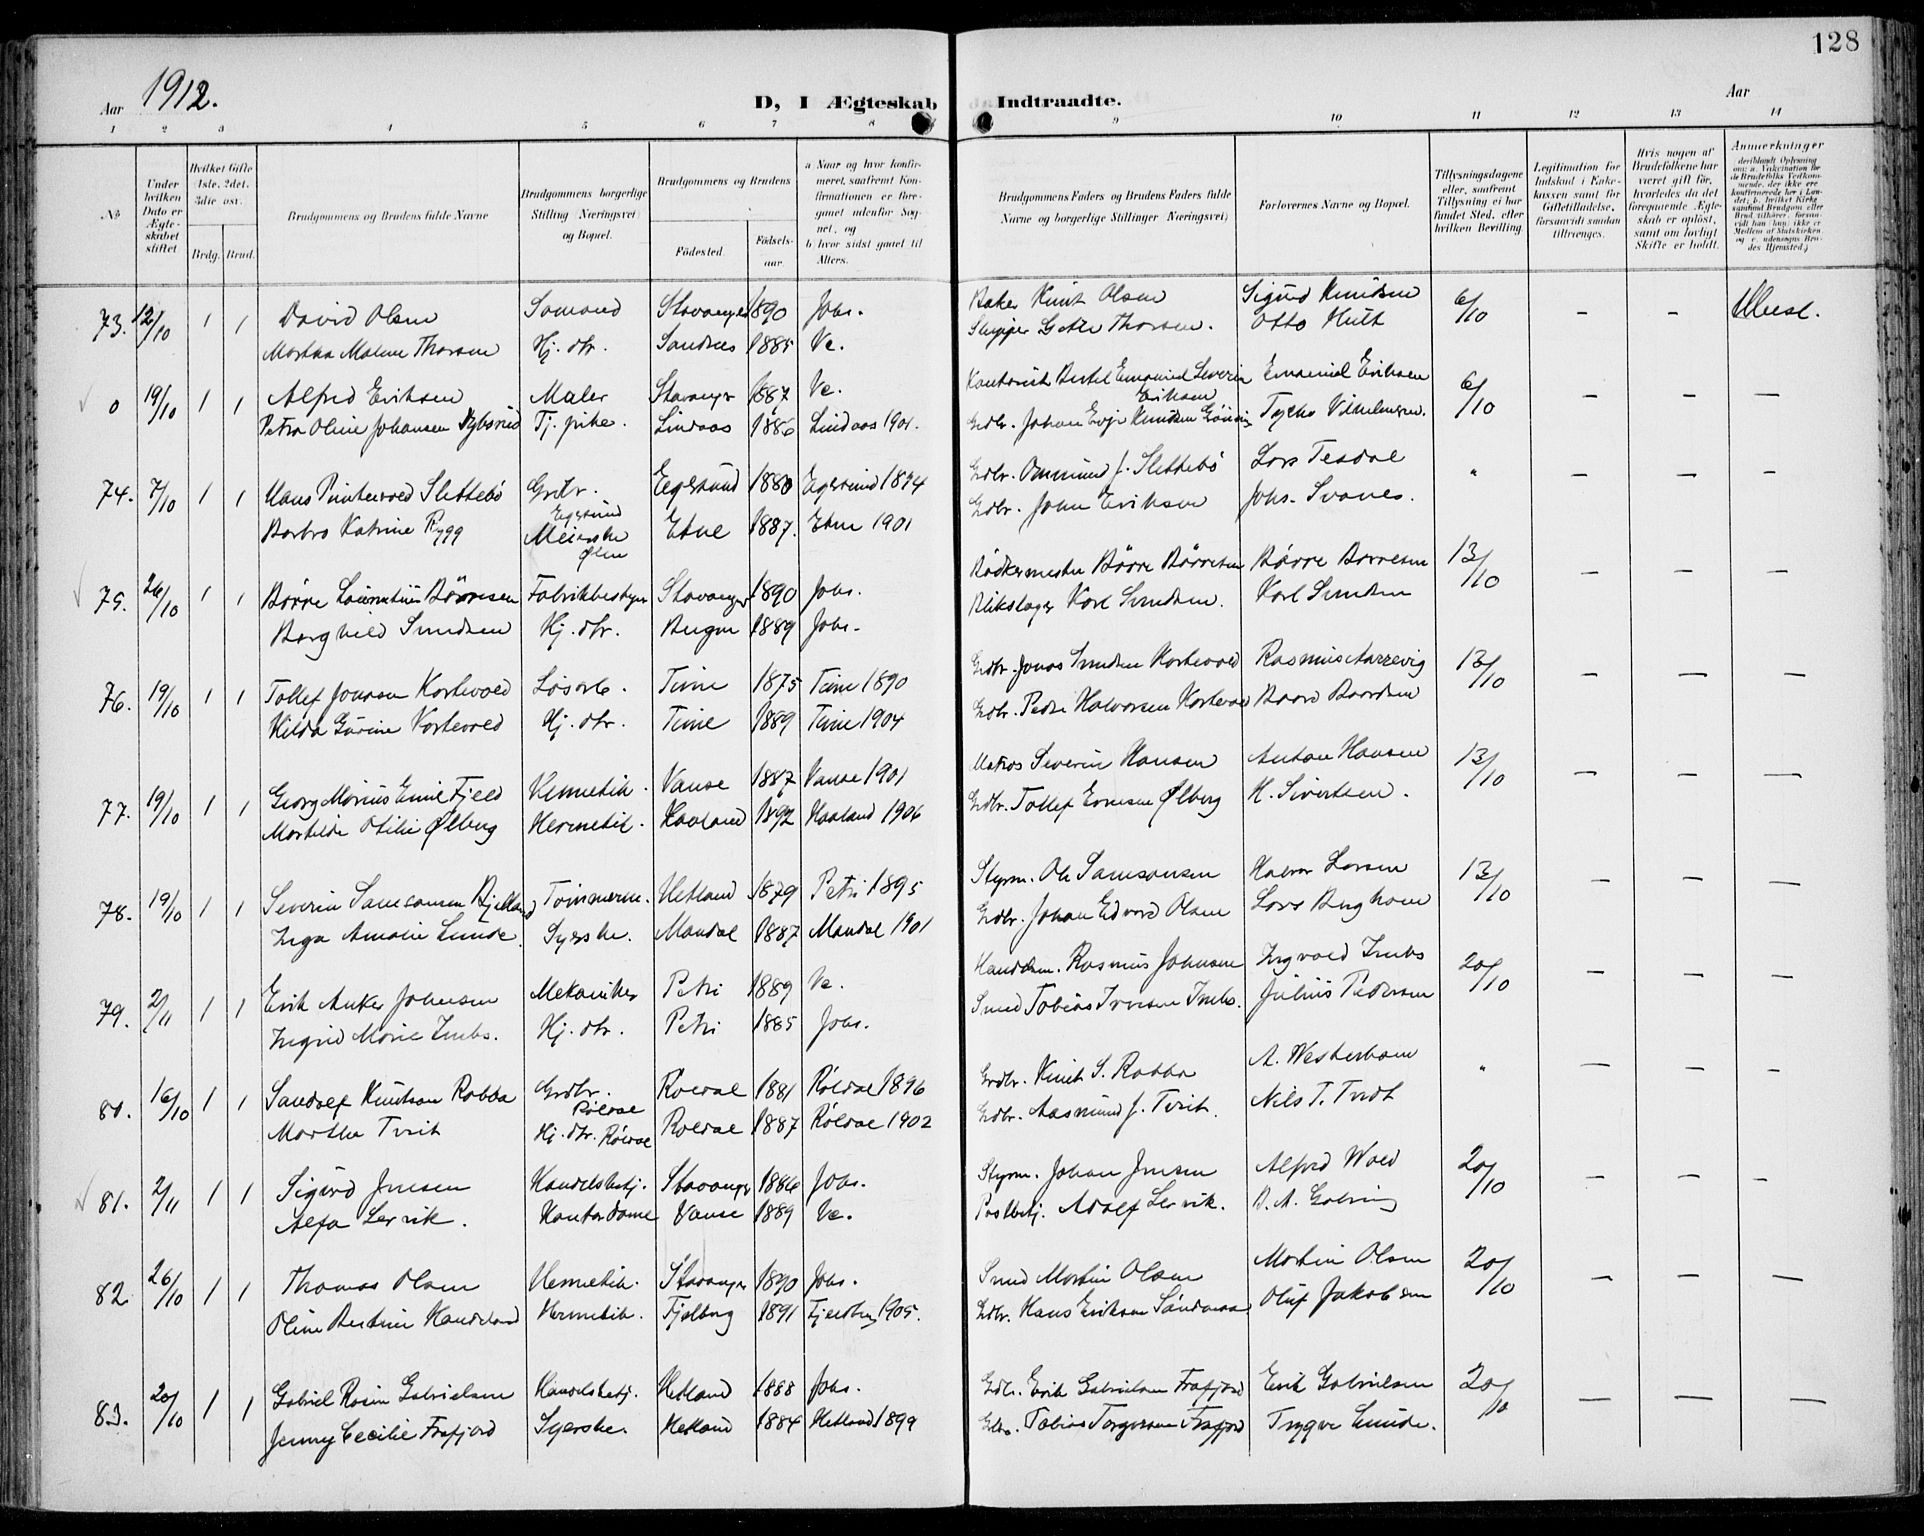 128
Aar 1912.
D, I Ægteskab Indtraadte.
Aar
1 2 3 4 5 6 7 8 9 10 11 12 13 14
No
Under hvilken Dato er Ægteskabet stiftet
Hvilket Gifte 1ste. 2det. 3die osv.
Brdg. Brud.
Brudgommens og Brudens fulde Navne
Brudgommens borgerlige Stilling Næringsvei og Bopæl.
Brudgommens og Brudens
Fødested.
Fødselsaar.
a Naar og hvor konfirmeret, saafremt Konfirmationen er foregaaet udenfor Sognet, og
b. hvor sidst gaaet til Alters.
Brudgommens Faders og Brudens Faders fulde Navne og borgerlige Stillinger Næringsvei)
Forlovernes Navne og Bopæl.
Tillysningsdagene eller, saafremt Tillysning ei har fundet Sted, efter hvilken Bevilling.
Legitimation for Indskud i Enkekassen samt for Giftetilladelse, forsaavidt saadan tiltrænges.
Hvis nogen af Brudefolkene har været gift før, hvorledes da det foregaaende Ægteskab er opløst, samt om lovligt Skifte er holdt.
Anmærkninger
73. 12/10 1 1 David Olsen Sømand Stavanger 1890 Johs. Baker Knut Olsen Sigurd Knudsen 6/10 - -
Martha Malene Thorsen Hj. dtr. Sandnes 1885 Ve. Skipper Thorsen. Otto Hult
0 19/10 1 1 Alfred Eriksen Maler Stavanger 1887 Ve. Kontorist Bertel Emanuel Severin Eriksen Emanuel Eriksen 6/10 - -
Petra Oline Johansen Tj. pike. Lindaas 1886 Lindaas 1901. Gdbr. Johan Knudsen Tycho Vilhelmsen.
74. 7/10 1 1 Hans Slettebö Grdbr. Egersund Egersund 1880 Egersund 1894 Gdbr. Ommund J. Slettebö Lars Tesdal " - -
Barbro Katrine Rygg Meierske Ølen Etne 1887. Etne 1901 Gdbr. John Eriksen Johs. Svanes.
75. 26/10 1 1 Börre Börresen Fabrikbestyrer Stavanger 1890 Johs. Bödkermester Börre Börresen Börre Börresen 13/10 - -
Borghild Svendsen Hj. dtr. Bergen 1889 Johs. Blikslager Karl Svendsen. Karl Svendsen
76. 19/10 1 1 Tollef Jonasen Kartevold Time 1875 Time 1890 Gdbr. Jonas Kartevold Rasmus 13/10 - - -
Hilda Gurine Kartevold Hj. dtr. Time 1889 Time 1904 Gdbr. Peder Halvorsen Kartevold Baard Baardsen
77. 19/10 1 1 Georg Marius Fjeld Hermetik. Vanse 1887 Vanse 1901 Matros Severin Hansen Anton Hansen 13/10 - - -
Mathilde Otilie Ølberg Hermetik. Haaland 1892 Haaland 1906 Gdbr. Tollef Ølberg H. Sivertsen.
78. 19/10 1 1 Severin Samsonsen Bjelland Tømmerm. Hetland 1879 Petri 1895 Styrm. Ole Samsonsen Halvor Larsen 13/10 - - -
Inga Amalie Lunde. Syerske. Mandal 1887 Mandal 1901 Gdbr. Johan Edvard Olsen Lars
79. 2/11 1 1 Erik Anker Johnsen Mekaniker Petri 1889 Ve. Handelsm. Rasmus Johnsen Ingvald Imbs 20/10 - - -
Ingrid Marie Imbs. Hj. dtr. Petri 1885 Johs. Smed Tobias Iversen Imbs. Julius Pedersen
80. 16/10 1 1 Sandolf Knutson Rabba Grdbr. Röldal Röldal 1881 Röldal 1896 Grdbr. Knut S. Rabba A. Westerham " - - -
Marthe Tveit Hj. dtr. Röldal Roldal 1887 Röldal 1902 Gdbr. Aasmund J. Tveit. Nils T. Tvedt
81. 2/11 1 1 Sigurd Jensen Handelsbetj. Stavanger 1886 Johs. Styrm. Johan Jensen Alfred Wold 20/10 - - -
Alfa Lervik. Kontordame Vanse 1889 Ve. Postbetj. Adolf Lervik.
82. 26/10 1 1 Thomas Olsen Hermetik. Stavanger 1890 Johs. Smed Martin Olsen Martin Olsen 20/10 - - -
Oline Bertine Handeland Hermetik. Fjelberg 1891 Fjelberg 1905. Gdbr. Hans Eriksen Oluf Jakobsen
83. 20/10 1 1 Gabriel Rasin Gabrielsen Handelsbetj. Hetland 1888 Johs. Gdbr. Erik Gabrielsen Frafjord Erik Gabrielsen 20/10 - - -
Jenny Cecilie Frafjord Syerske. Hetland 1884 Hetland 1899 Gdbr. Tobias Torgersen Frafjord Trygve Lunde.